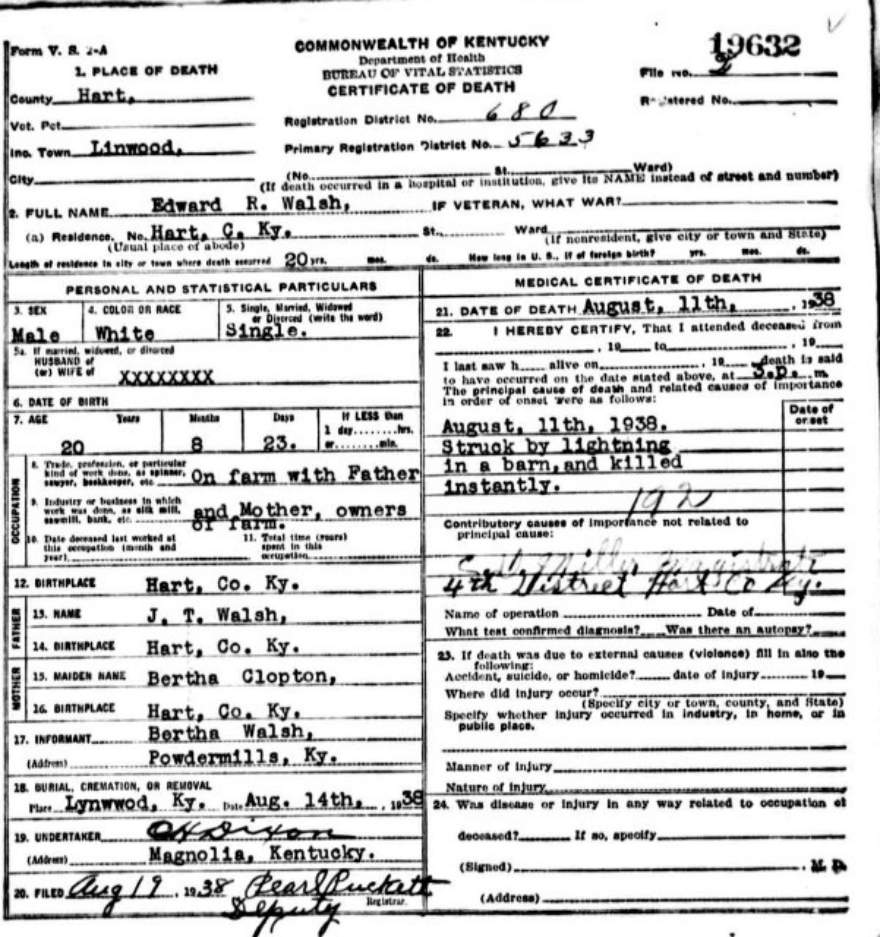 Form V. S. 2-A
COMMONWEALTH OF KENTUCKY
Department of Health
BUREAU OF VITAL STATISTICS
CERTIFICATE OF DEATH
19632
File No.
Registered No.
1. PLACE OF DEATH
County Hart,
Vot. Pct.
Inc. Town Linwood,
City
Registration District No. 680
Primary Registration District No. 5633
(No. St. Ward)
(If death occurred in a hospital or institution, give its NAME instead of street and number)
2. FULL NAME Edward R. Walsh, IF VETERAN, WHAT WAR?
(a) Residence. No. Hart, C. Ky. St., Ward
(Usual place of abode) (If nonresident, give city or town and State)
Length of residence in city or town where death occurred 20 yrs. mos. ds. How long in U. S., if of foreign birth? yrs. mos. ds.
PERSONAL AND STATISTICAL PARTICULARS
3. SEX
Male
4. COLOR OR RACE
White
5. Single, Married, Widowed
or Divorced (write the word)
Single.
5a. If married, widowed, or divorced
HUSBAND of
(or) WIFE of XXXXXXXX
6. DATE OF BIRTH
7. AGE Years Months Days If LESS than
1 day........hrs.
or........min.
20 8 23.
OCCUPATION
8. Trade, profession, or particular
kind of work done, as spinner,
sawyer, bookkeeper, etc. On farm with Father
9. Industry or business in which
work was done, as silk mill,
sawmill, bank, etc. and Mother, owners
of farm.
10. Date deceased last worked at
this occupation (month and
year)
11. Total time (years)
spent in this
occupation
12. BIRTHPLACE Hart, Co. Ky.
FATHER
13. NAME J. T. Walsh,
14. BIRTHPLACE Hart, Co. Ky.
MOTHER
15. MAIDEN NAME Bertha Clopton,
16. BIRTHPLACE Hart, Co. Ky.
17. INFORMANT Bertha Walsh,
(Address) Powdermills, Ky.
18. BURIAL, CREMATION, OR REMOVAL
Place Lynwwod, Ky. Date Aug. 14th, , 1938
19. UNDERTAKER C H Dixon
(Address) Magnolia, Kentucky.
20. FILED Aug 19 , 1938 Pearl Puckett
Registrar.
Deputy
MEDICAL CERTIFICATE OF DEATH
21. DATE OF DEATH August, 11th, , 1938
22. I HEREBY CERTIFY, That I attended deceased from
, 19 to , 19
I last saw h alive on , 19 death is said
to have occurred on the date stated above, at 3.p. m.
The principal cause of death and related causes of importance
in order of onset were as follows:
Date of
onset
August, 11th, 1938.
Struck by lightning
in a barn, and killed
instantly.
192
Contributory causes of importance not related to
principal cause:
Miller Magistrate
4th District Hart Co Ky.
Name of operation Date of
What test confirmed diagnosis? Was there an autopsy?
23. If death was due to external causes (violence) fill in also the
following:
Accident, suicide, or homicide? date of injury 19
Where did injury occur?
(Specify city or town, county, and State)
Specify whether injury occurred in industry, in home, or in
public place.
Manner of injury
Nature of injury
24. Was disease or injury in any way related to occupation of
deceased? If so, specify
(Signed) M. D.
(Address)